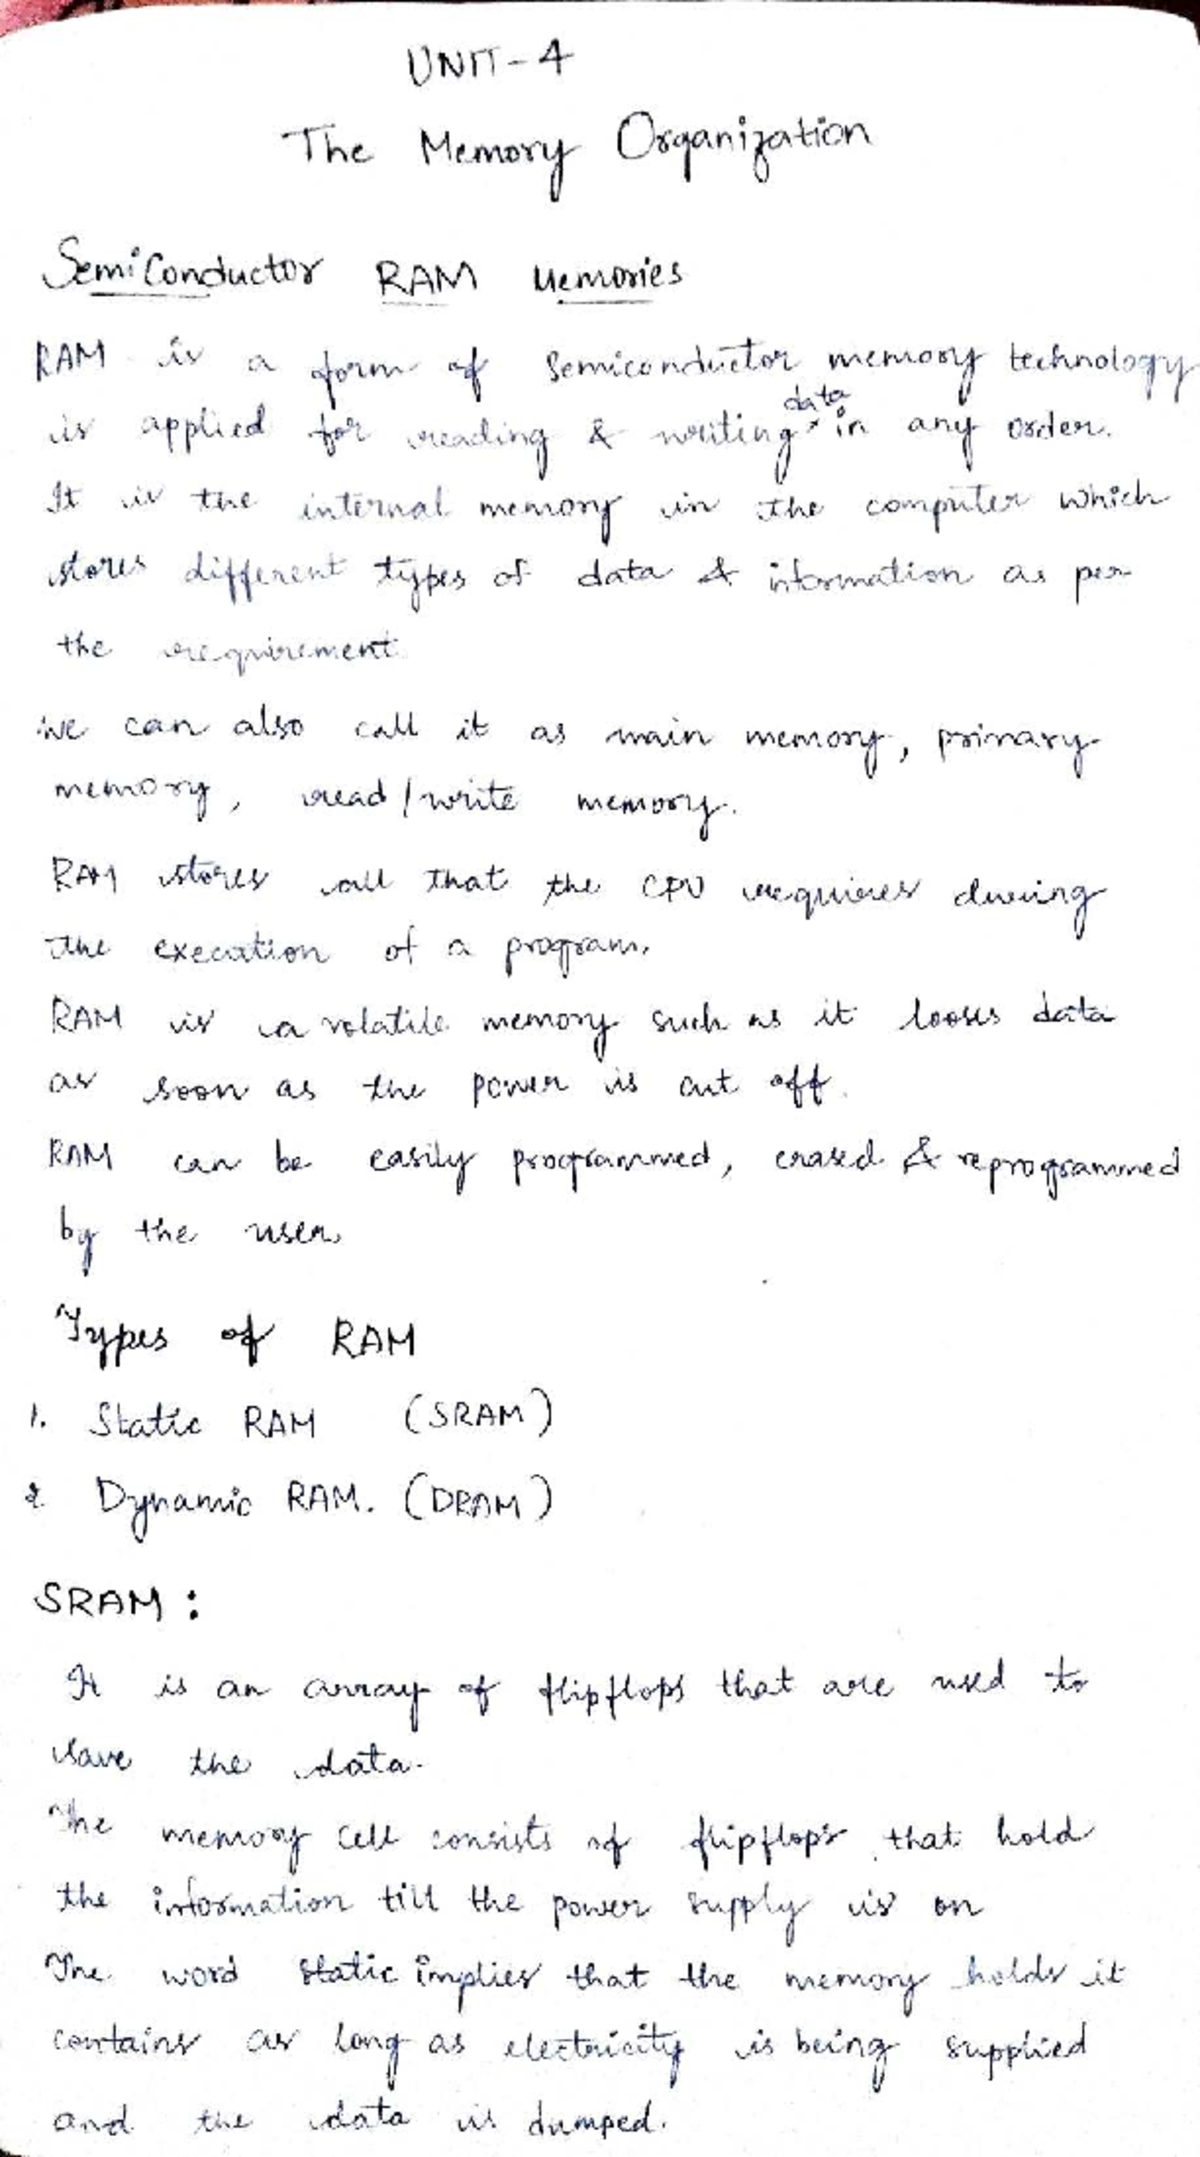 UNIT-4
The Memory Organization
SemiConductor RAM Memories
RAM is a form of Semiconductor memory technology
is applied for reading & writing data in any order.
It is the internal memory in the computer which
stores different types of data & information as per
the requirement.
We can also call it as main memory, primary
memory, read/write memory.
RAM stores all that the CPU requires during
the execution of a program.
RAM is a volatile memory such as it looses data
as soon as the power is cut off.
RAM can be easily programmed, erased & reprogrammed
by the user.
Types of RAM
1. Static RAM (SRAM)
2. Dynamic RAM. (DRAM)
SRAM :
It is an array of flipflops that are used to
save the data.
The memory cell consists of flipflops that hold
the information till the power supply is on
The word static implies that the memory holds it
contains as long as electricity is being supplied
and the data is dumped.